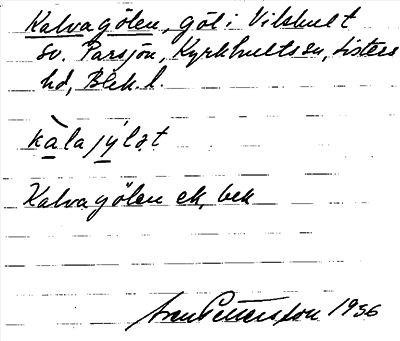 Kalvagölen, göl i Vilshult
sv. Parsjön, Kyrkhults sn, Listers
hd, Blek. l.
kàlajýlət
Kalvagölen ek, bek
Sven Pettersson 1936